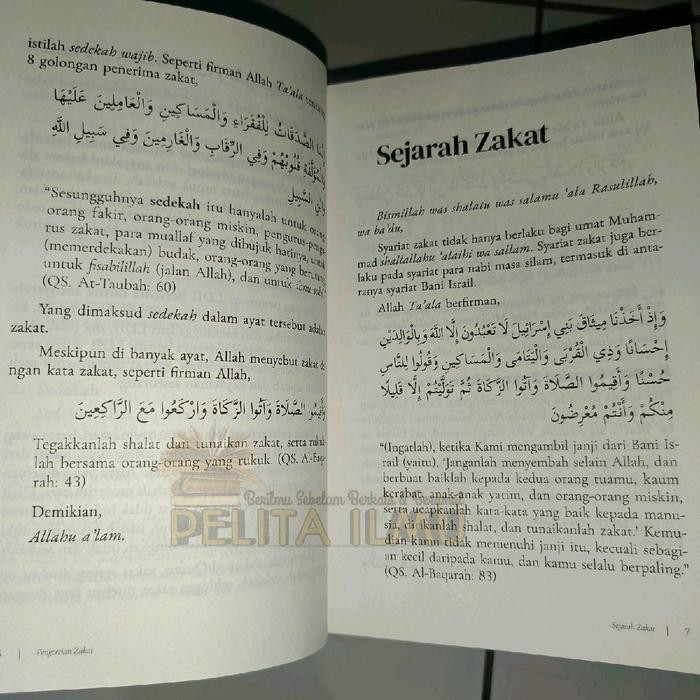 istilah sedekah wajib. Seperti firman Allah Ta'ala
8 golongan penerima zakat,
إِنَّمَا الصَّدَقَاتُ لِلْفُقَرَاءِ وَالْمَسَاكِينِ وَالْعَامِلِينَ عَلَيْهَا
وَالْمُؤَلَّفَةِ قُلُوبُهُمْ وَفِي الرِّقَابِ وَالْغَارِمِينَ وَفِي سَبِيلِ اللَّهِ
وَابْنِ السَّبِيلِ
"Sesungguhnya sedekah itu hanyalah untuk orang
orang fakir, orang-orang miskin, pengurus-pengu
rus zakat, para muallaf yang dibujuk hatinya, untuk
(memerdekakan) budak, orang-orang yang berutang
untuk fisabilillah (jalan Allah), dan untuk ibnu sabil"
(QS. At-Taubah: 60)
Yang dimaksud sedekah dalam ayat tersebut adalah
zakat.
Meskipun di banyak ayat, Allah menyebut zakat de
ngan kata zakat, seperti firman Allah,
وَأَقِيمُوا الصَّلَاةَ وَآتُوا الزَّكَاةَ وَارْكَعُوا مَعَ الرَّاكِعِينَ
Tegakkanlah shalat dan tunaikan zakat, serta rukuk-
lah bersama orang-orang yang rukuk. (QS. Al-Baqa-
rah: 43)
Demikian,
Allahu a'lam.
Pengertian Zakat
Sejarah Zakat
Bismillah was shalatu was salamu 'ala Rasulillah,
wa ba'du,
Syariat zakat tidak hanya berlaku bagi umat Muham-
mad shallallahu 'alaihi wa sallam. Syariat zakat juga ber-
laku pada syariat para nabi masa silam, termasuk di anta-
ranya syariat Bani Israil.
Allah Ta'ala berfirman,
وَإِذْ أَخَذْنَا مِيثَاقَ بَنِي إِسْرَائِيلَ لَا تَعْبُدُونَ إِلَّا اللَّهَ وَبِالْوَالِدَيْنِ
إِحْسَانًا وَذِي الْقُرْبَى وَالْيَتَامَى وَالْمَسَاكِينِ وَقُولُوا لِلنَّاسِ
حُسْنًا وَأَقِيمُوا الصَّلَاةَ وَآتُوا الزَّكَاةَ ثُمَّ تَوَلَّيْتُمْ إِلَّا قَلِيلًا
مِنْكُمْ وَأَنْتُمْ مُعْرِضُونَ
"(Ingatlah), ketika Kami mengambil janji dari Bani Is-
rail (yaitu), 'Janganlah menyembah selain Allah, dan
berbuat baiklah kepada kedua orang tuamu, kaum
kerabat, anak-anak yatim, dan orang-orang miskin,
serta ucapkanlah kata-kata yang baik kepada manu-
sia, dirikanlah shalat, dan tunaikanlah zakat.' Kemu-
dian kamu tidak memenuhi janji itu, kecuali sebagi-
an kecil daripada kamu, dan kamu selalu berpaling."
(QS. Al-Baqarah: 83)
Sejarah Zakat | 7
Berilmu Sebelum Berkata & Beramal
PELITA ILMU